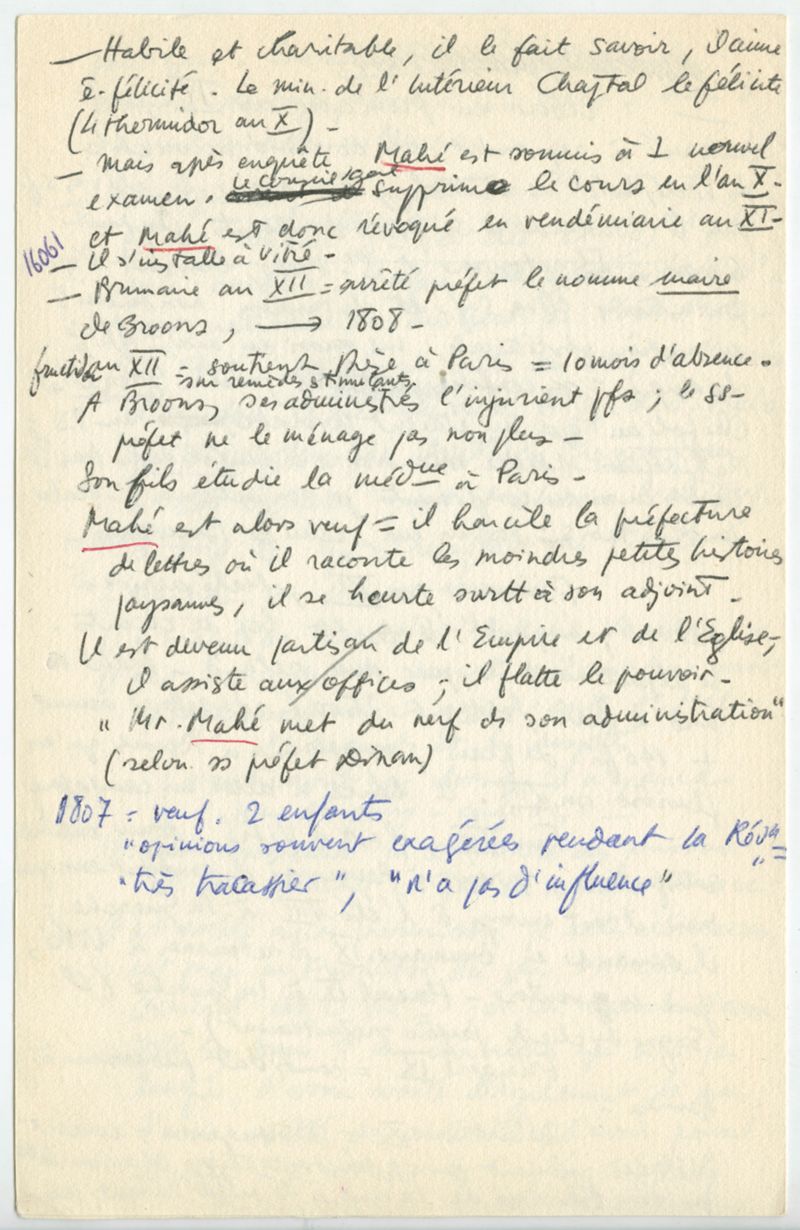 — Habile et charitable, il le fait savoir, il aime
ê. félicité. Le min. de l'Intérieur Chaptal le félicite
(4 thermidor an X) -
— Mais après enquête, Mahé est soumis à 1 nouvel
examen. le conseil gal supprime le cours en l'an X -
et Mahé est donc révoqué en vendémiaire an XI -
16061
— Il s'installe à Vitré -
— Brumaire an XII = arrêté préfet le nomme maire
de Broons, → 1808 -
fructidor an XII = soutient thèse à Paris = 10 mois d'absence.
sur remèdes stimulants
A Broons, ses administrés l'injurient pfs ; le ss-
préfet ne le ménage pas non plus -
Son fils étudie la médque à Paris -
Mahé est alors veuf = il harcèle la préfecture
de lettres où il raconte les moindres petites histoires
paysannes, il se heurte surtt à son adjoint -
Il est devenu partisan de l'Empire et de l'Eglise,
il assiste aux offices ; il flatte le pouvoir -
" Mr. Mahé met du nerf ds son administration"
(selon ss préfet Dinan)
1807 = veuf. 2 enfants
"opinions souvent exagérées pendant la Révon"
"très tracassier", "n'a pas d'influence"